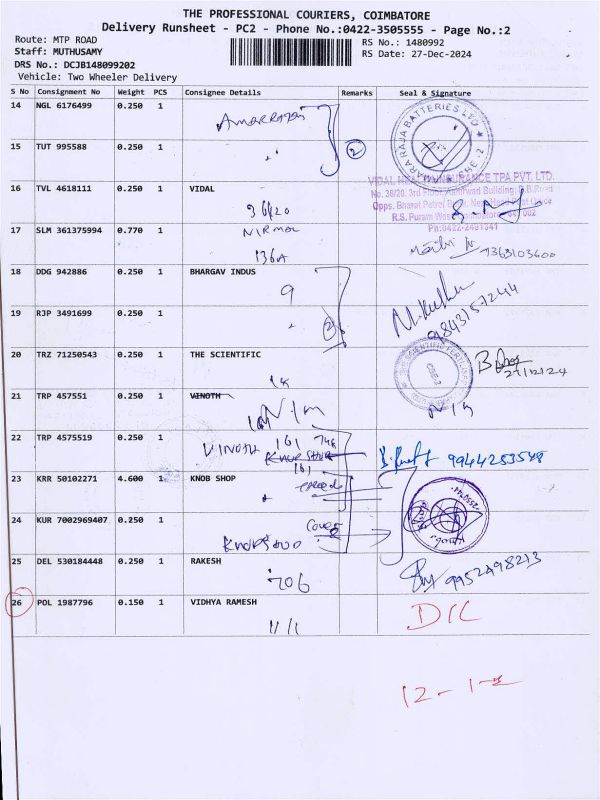 THE PROFESSIONAL COURIERS, COIMBATORE
Delivery Runsheet - PC2 - Phone No.:0422-3505555 - Page No.:2
Route: MTP ROAD
Staff: MUTHUSAMY
DRS No.: DCJB148099202
Vehicle: Two Wheeler Delivery
RS No.: 1480992
RS Date: 27-Dec-2024
S No Consignment No Weight PCS Consignee Details Remarks Seal & Signature
14 NGL 6176499 0.250 1
15 TUT 995588 0.250 1
2
AMARARAJA BATTERIES LTD
16 TVL 4618111 0.250 1 VIDAL
36/20
VIDAL HEALTH INSURANCE TPA PVT. LTD.
No. 36/20, 3rd Floor,
R.S. Puram West, Coimbatore - 641 002
Ph:0422-2491341
17 SLM 361375994 0.770 1 NIRMAL
136A
9363103600
18 DDG 942886 0.250 1 BHARGAV INDUS
9
19 RJP 3491699 0.250 1
2
9843157244
20 TRZ 71250543 0.250 1 THE SCIENTIFIC
27/12/24
21 TRP 457551 0.250 1 VINOTH
22 TRP 4575519 0.250 1
VINOTH 161
161
9944253548
23 KRR 50102271 4.600 1 KNOB SHOP
24 KUR 7002969407 0.250 1
Cover
25 DEL 530184448 0.250 1 RAKESH
706
9952498213
26 POL 1987796 0.150 1 VIDHYA RAMESH
11/1
D/L
12-1-